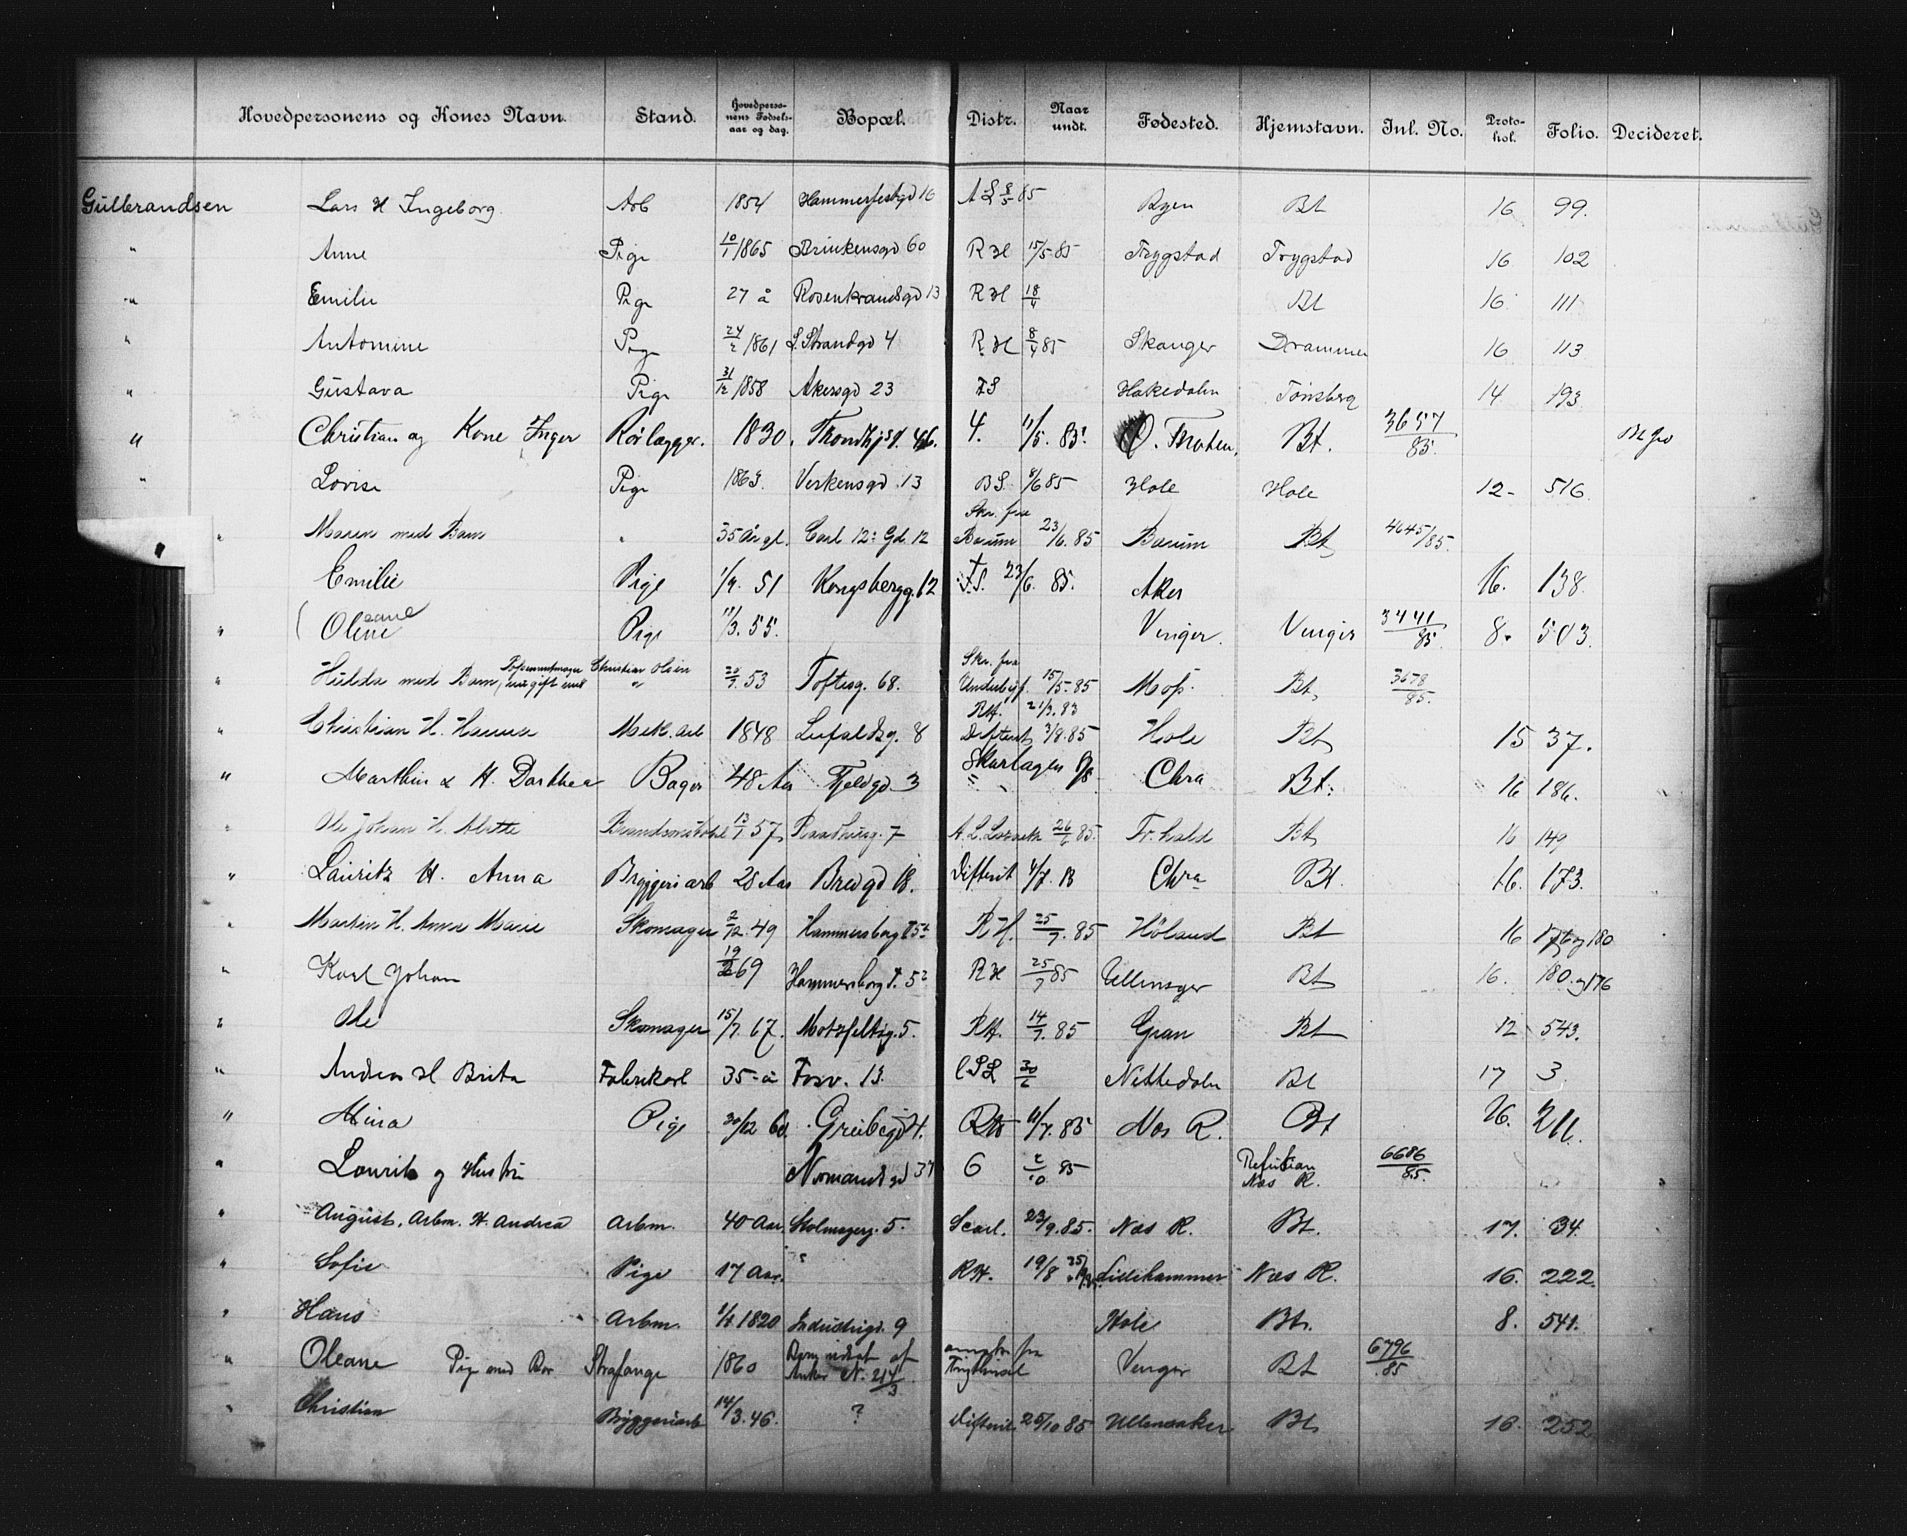 Hovedpersonens og Kones Navn. Stand. Hovedperso-nens Fødsels-aar og dag. Bopæl. Distr. Naar undt. Fødested. Hjemstavn. Inl. No. Proto-kol. Folio. Decideret.
Gulbrandsen Lars H Ingeborg Arb 1854 Hammerfestgd 16 A S 85 Byen Bt 16 99.
" Anne Pige 10/1 1865 Brinkensgd 60 R H 15/5 85 Trygstad Trygstad 16 102
" Emilie Pige 27 å Rosenkrandsgd 13 R H 18/4 Bt 16 111
" Antomine Pige 24/2 1861 S. Strandgd 4 R H 8/4 85 Skauger Drammen 16 113
" Gustava Pige 31/12 1858 Akersgd 23 Hakedalen Tønsberg 14 193
" Christian og Kone Inger Rørlægger. 1830. Trondhjs. 46. 4. 11/5. 85. Ø. Thoten, Bt. 3657/85.
" Lovise Pige 1863. Verkensgd. 13 B S. 8/6 85 Hole Hole 12- 516
" Maren med Barn " 35 År gl. Carl 12: Gd. 12 Skr. fra Bærum 23/6. 85 Bærum Bt 4645/85.
Emilie Pige 1/9. 51 Kongsbergg. 12 F.S. 23/6. 85. Aker 16. 138.
" Oleane Pige 11/3. 55. Vinger. Vinger 3441/85 8. 503.
" Hulda med Barn, ugift med Christian Olsen " 53 Toftesg. 68. Skr. fra 15/5 85 Moss. Bt, 3678/85.
" Christian H. Hanna Mek. Arb 1848 8 RH. 21/3. 83 Difterit 3/8. 85 Hole Bt 15 37.
" Marthin & H. Dorthea Bager 48 Aar Fjeldgd 3 Skarlagen Chra Bt. 16 186.
" Ole Johan H. Alette 13/1 57 Raadhusg. 7 26/6 85. Fr. hald Bt 16 149
" Lauritz H. Anna Bryggeri arb 28 Aar Bredgd 18. Difterit Chra Bt. 16. 173.
" Martin H. Anne Marie Skomager 2/12. 49 Hammersborg T. 5 R H. 25/7. 85 Høland Bt 16 176 og 180
" Karl Johan 19/2 69 Hammersborg T. 5 R H 25/7 85 Ullensager Bt 16. 180. og 176
" Ole Skomager 15/7. 67. Motzfeltsg. 5. RH. 14/7. 85 Gran Bt 12 543.
" Andreas H Brita Fabrikarb 35- å Fosv. 13. 30/6 Nittedalen Bt 17 3
" Mina Pige 30/12 60. Grebegd 4. RH 11/7. 85 Næs R. Bt 16. 211.
" Laurits og Hustru Normandsgd 37 6 2/10 85 Refusion Næs R. 6686/85.
" August, Arbm. H. Andrea Arbm. 40 Aar Skolmagerg. 5. Scarl. 23/9. 85. Næs R. Bt. 17. 34.
" Sofie Pige 17 Aar. RH. 19/8 Lillehammer Næs R. 16. 222.
" Hans Arbm. 1/4 1820 Industrigd. 9 Hole Bt. 8. 541.
" Oleane Pige med Bar Strafange 1860 Barn udsat af Anker N. 214/3 fra Vinger Bt 6796/85
" Christian Bryggeriarb 14/3. 46. ? Difterit 25/10 85 Ullensaker Bt, 16. 252.